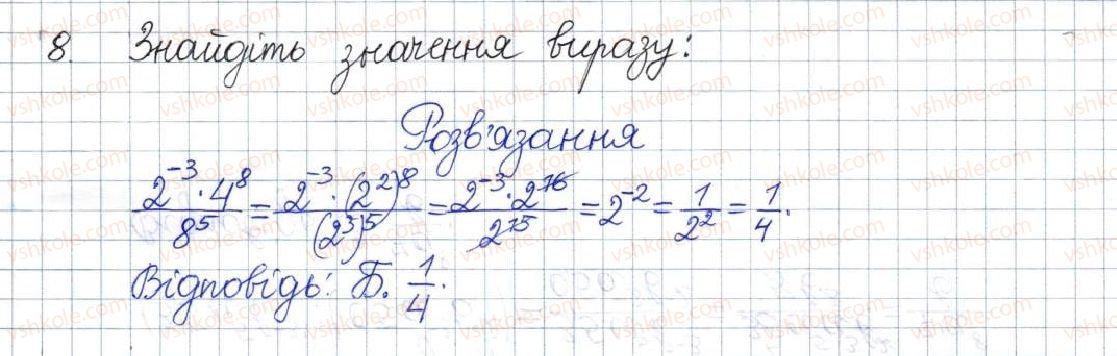 8. Знайдіть значення виразу:
Розв'язання
2^-3 · 4^8 / 8^5 = 2^-3 · (2^2)^8 / (2^3)^5 = 2^-3 · 2^16 / 2^15 = 2^-2 = 1/2^2 = 1/4.
Відповідь: Б. 1/4.